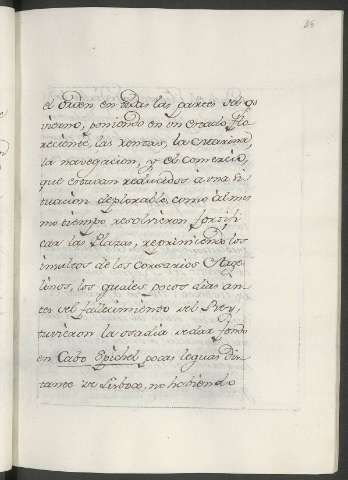 el orden en todas las partes del go
vierno, poniendo en un estado flo
reciente, las rentas, la Marina,
la navegacion, y el comercio,
que estavan reducidos à una si
tuacion deplorable, como al mis
mo tiempo, resolvieron fortifi
car las Plazas, reprimiendo los
insultos de los Corsarios Arge
linos, los quales pocos dias an
tes del fallecimiento del Rey,
tuvieron la osadia de dar fondo
en Cabo Espichel pocas leguas dis
tante de Lisboa, no habiendo